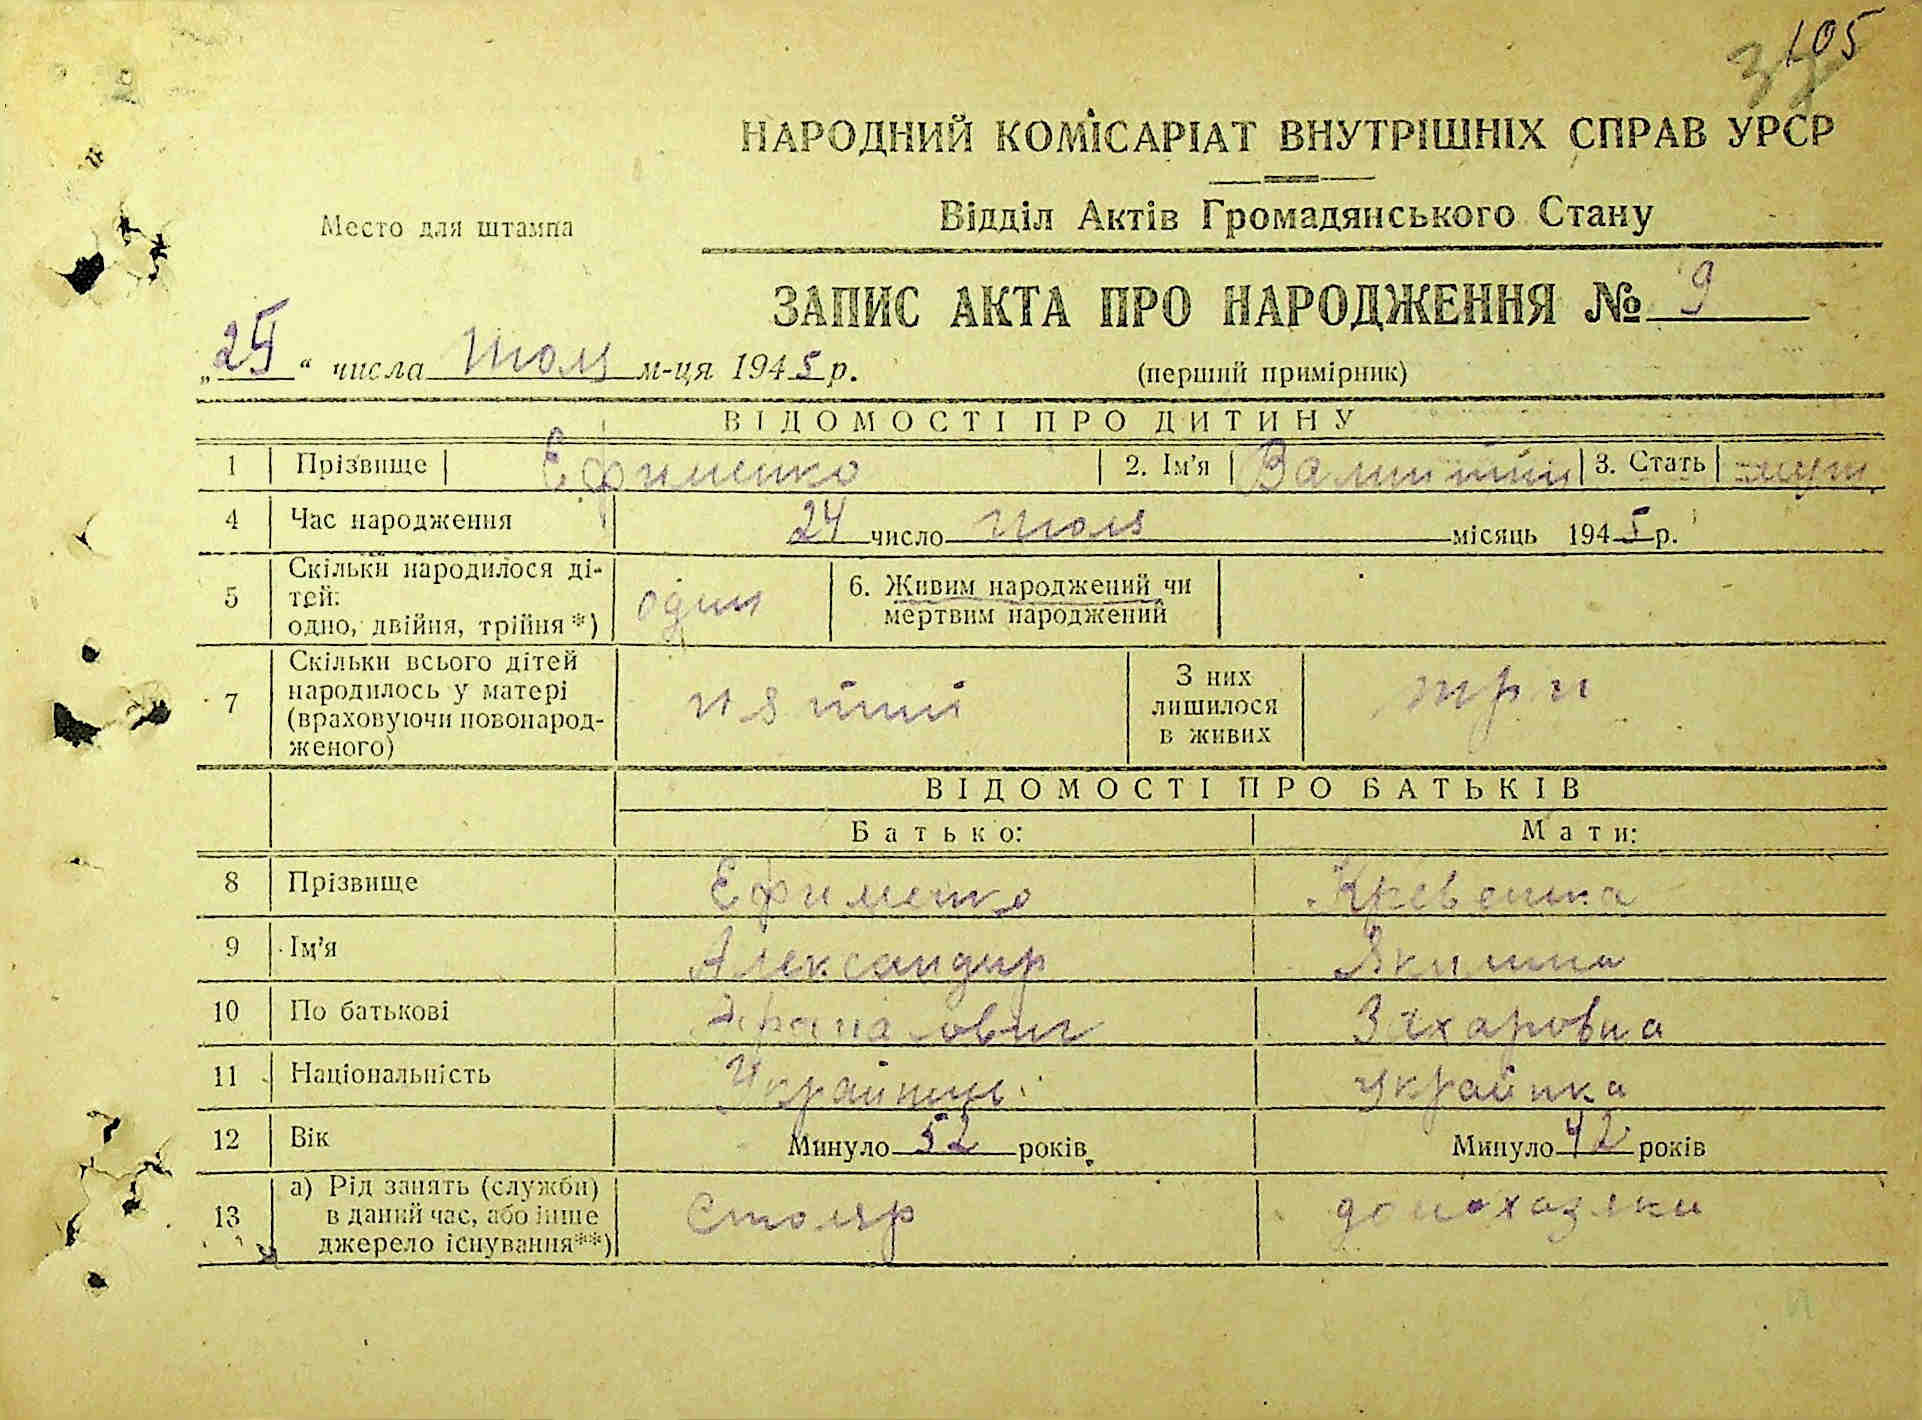 105
НАРОДНИЙ КОМІСАРІАТ ВНУТРІШНІХ СПРАВ УРСР
Место для штампа
Відділ Актів Громадянського Стану
ЗАПИС АКТА ПРО НАРОДЖЕННЯ № 9
„25“ числа Июля м-ця 1945 р.
(перший примірник)
ВІДОМОСТІ ПРО ДИТИНУ
1 Прізвище Ефименко 2. Ім'я 3. Стать муж.
4 Час народження 24 число Июля місяць 1945 р.
5 Скільки народилося ді-
тей:
одно, двійня, трійня *) один 6. Живим народжений чи
мертвим народжений
7 Скільки всього дітей
народилось у матері
(враховуючи новонарод-
женого) З них
лишилося
в живих три
ВІДОМОСТІ ПРО БАТЬКІВ
Батько: Мати:
8 Прізвище Ефименко
9 Ім'я Александр Якилина
10 По батькові Захаровна
11 Національність Украйинка
12 Вік Минуло 52 років. Минуло 42 років
13 а) Рід занять (служби)
в даний час, або інше
джерело існування**) Столяр домохазяйка